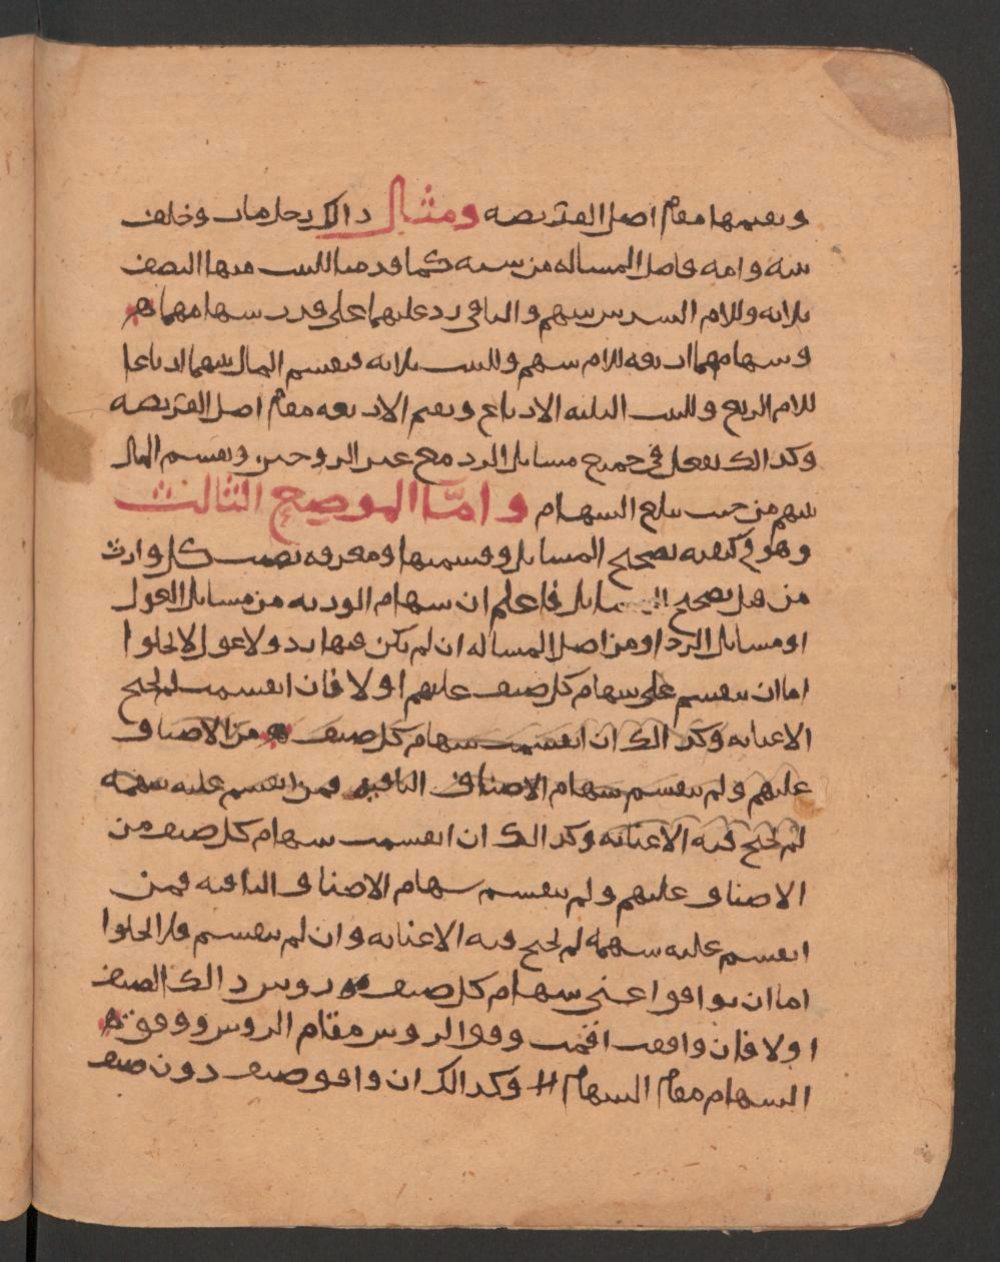 وتقيمها مقام اصل الفريضه ومثال ذالك رجل مات وخلف
بنته وامه فاصل المساله من سته كما قدمنا للبنت منها النصف
ثلاثه وللام السدس سهم والباقي رد عليهما على قدر سهامهما
وسهامهما اربعه للام سهم وللبنت ثلاثه فيقسم المال بينهما ارباعا
للام الربع وللبنت الثلثه الارباع وتقيم الاربعه مقام اصل الفريضه
وكذالك تفعل في جميع مسائل الرد مع غير الزوجين وتقسم المال
بينهم من حيث تبلغ السهام واما الموضع الثالث
وهو في كيفيه تصحيح المسائل وقسمتها ومعرفه نصيب كل وارث
من قبل تصحيح المسائل فاعلم ان سهام الورثه من مسائل العول
او مسائل الرد او من اصل المساله ان لم يكن فيها رد ولا عول لا يخلوا
اما ان ينقسم على سهام كل صنف عليهم او لا فان انقسمت لم يحتج
الا عنايه وكذالك ان انقسمت سهام كل صنف من الاصناف
عليهم ولم ينقسم سهام الاصناف الباقيه فمن انقسم عليه سهمه
لم يحتج فيه الا عنايه وكذالك ان انقسمت سهام كل صنف من
الاصناف عليهم ولم ينقسم سهام الاصناف الباقيه فمن
انقسم عليه سهمه لم يحتج فيه الا عنايه وان لم ينقسم فلا يخلوا
اما ان يوافق اعني سهام كل صنف روس ذالك الصنف
او لا فان وافقت اقمت وفق الروس مقام الروس ووفق
السهام مقام السهام وكذالك ان وافق صنف دون صنف